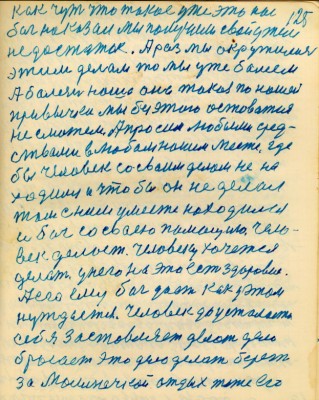 как чуть что такое уже это нас 125
бог наказал мы получим свой этот
недостаток. А раз мы окружимся
этим делам то мы уже балеем
А балезн наша она такая по нашей
привычки мы без этого остоватся
не сможем. А просим любыми сред-
ствами в любом нашим месте, где
бы человек со своим делам не на
ходился и что бы он не делал
там с ним умести находился
и бог со своею помощию, чело-
век делает. Человеку хочется
делать, у него на это есть здоровие.
А его ему бог дает как этом
нуждается. Человек до усталости
себя заставляет делат дело
бросает это дело делать берет
за молинечкой отдых тоже его